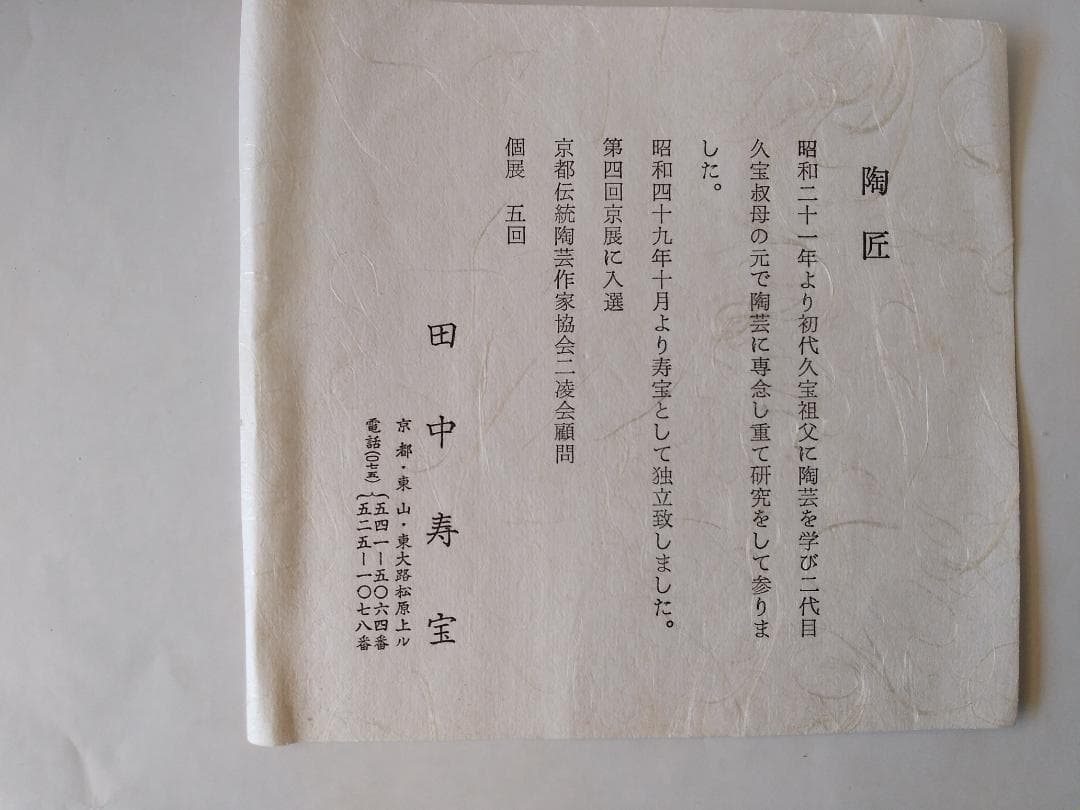 陶匠
昭和二十一年より初代久宝祖父に陶芸を学び二代目
久宝叔母の元で陶芸に専念し重て研究をして参りま
した。
昭和四十九年十月より寿宝として独立致しました。
第四回京展に入選
京都伝統陶芸作家協会二凌会顧問
個展　五回
田中寿宝
京都・東山・東大路松原上ル
電話(〇七五)五四一ー五〇六四番
五二五ー一〇七八番